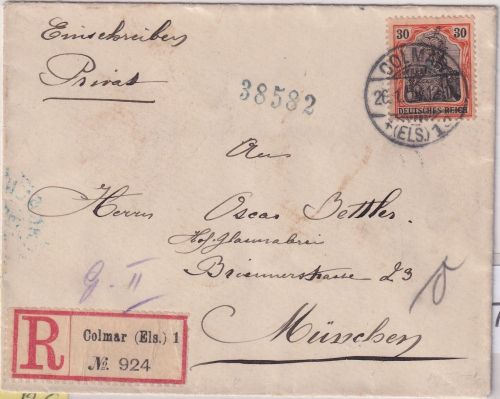 Einschreiben
Privat
30 30
DEUTSCHES REICH
COLMAR
(ELS.) 1
38582
An
Herrn Oscar Bettler
Hofglasmalerei
Briennerstrasse 23
München
G. II
R
Colmar (Els.) 1
№. 924